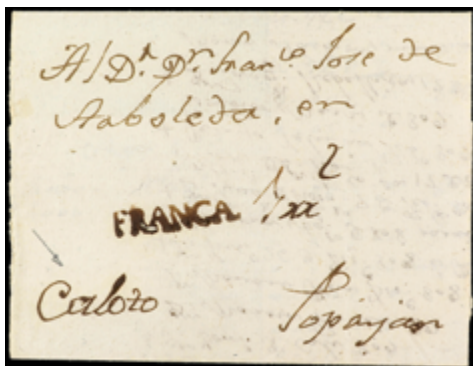 A/Dn. Dr. Franco Jose de
Arboleda, en
2
FRANCA
Caloto Popayan